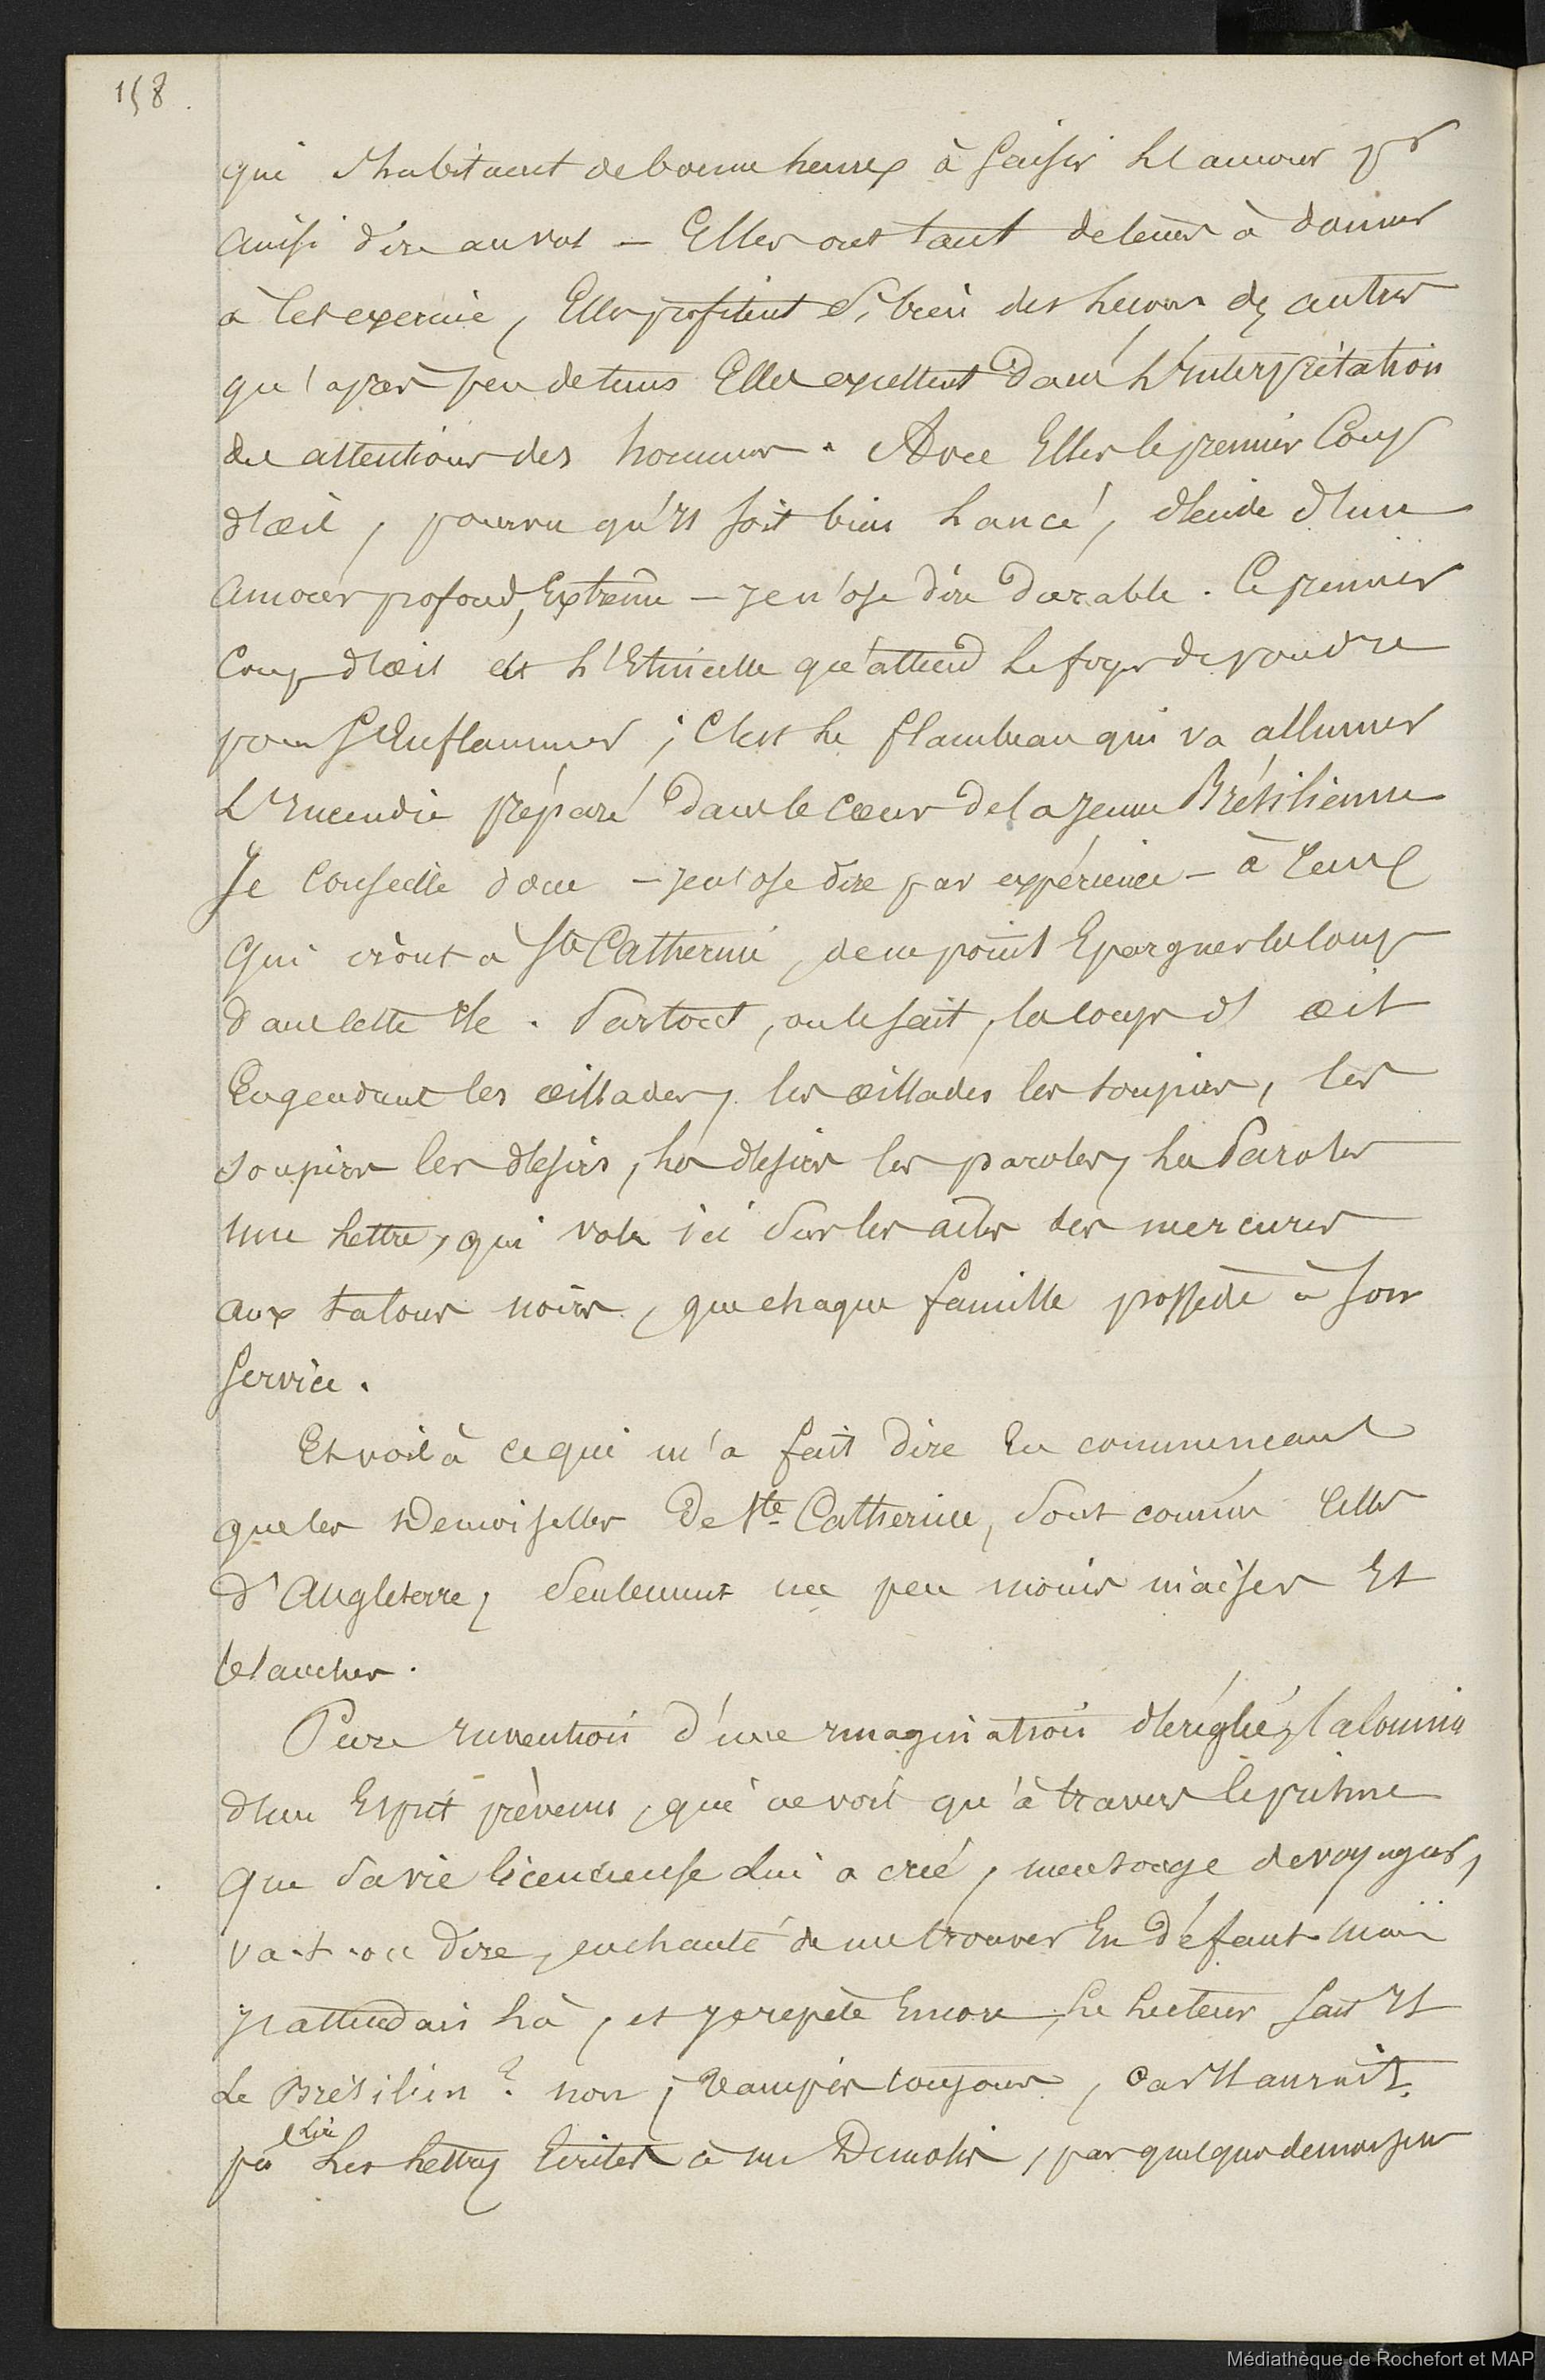 158.
qui s'habituent de bonne heure à saisir l'amour pr
ainsi dire au vol – Elles ont tant de tems à donner
à cet exercice, Elles profitent si bien des leçons des autres
qu'après peu de tems Elles excellent dans l'interprétation
des attentions des hommes. Avec Elles le premier Coup
d'œil, pourvu qu'il soit bien lancé, décide d'un
amour profond, Extrême – je n'ose dire durable. Ce premier
Coup d'œil est l'Etincelle qu'attend le foyer de poudre
pour s'Enflammer ; C'est le flambeau qui va allumer
L'incendie préparé dans le cœur de la jeune Brésilienne
Je Conseille donc – je n'ose dire par expérience – à Ceux
Qui iront à Ste Catherine, de ne point Epargner les coups
dans cette Ile. Partout, on le sait, les coups d'œil
Engendrent les œillades, les œillades les soupirs, les
soupirs les désirs, les désirs les paroles, les Paroles
une Lettre, qui vole ici sur les ailes des mercures
aux talons noirs, que chaque famille possède à son
service.
Et voilà ce qui m'a fait dire En commençant
que les Demoiselles De Ste Catherine, sont comme Celles
d'Angleterre, seulement un peu moins niaises Et
blanches.
Pure invention d'une imagination déréglée, Calomnie
d'un Esprit prévenu, qui ne voit qu'à travers le prisme
que sa vie licencieuse lui a créé, mensonge de voyageur,
va-t-on dire, enchanté de me trouver En défaut. Mais
j'attendais là, et je repète Encore, Le Lecteur sait Il
Le Brésilien ? non, toujours, car Il aurait
pu lire Les Lettres Ecrites à un Demolis, par quelques demoiselles
Médiathèque de Rochefort et MAP